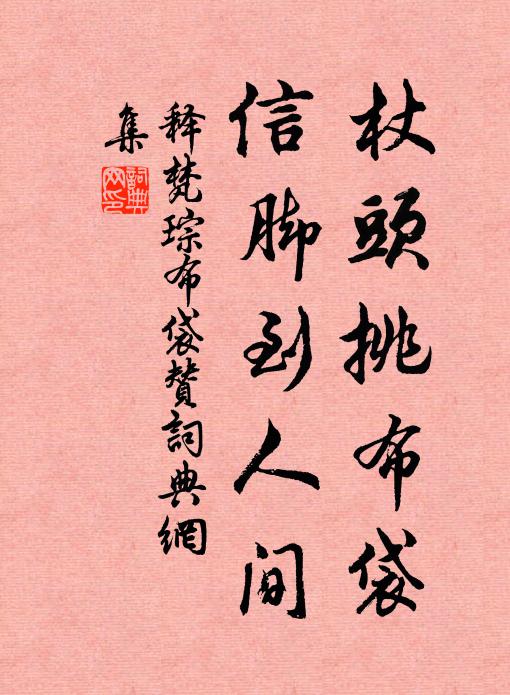 杖頭挑布袋
信脚到人间
释梵琮布袋贊詞典網
集
詞典
网印